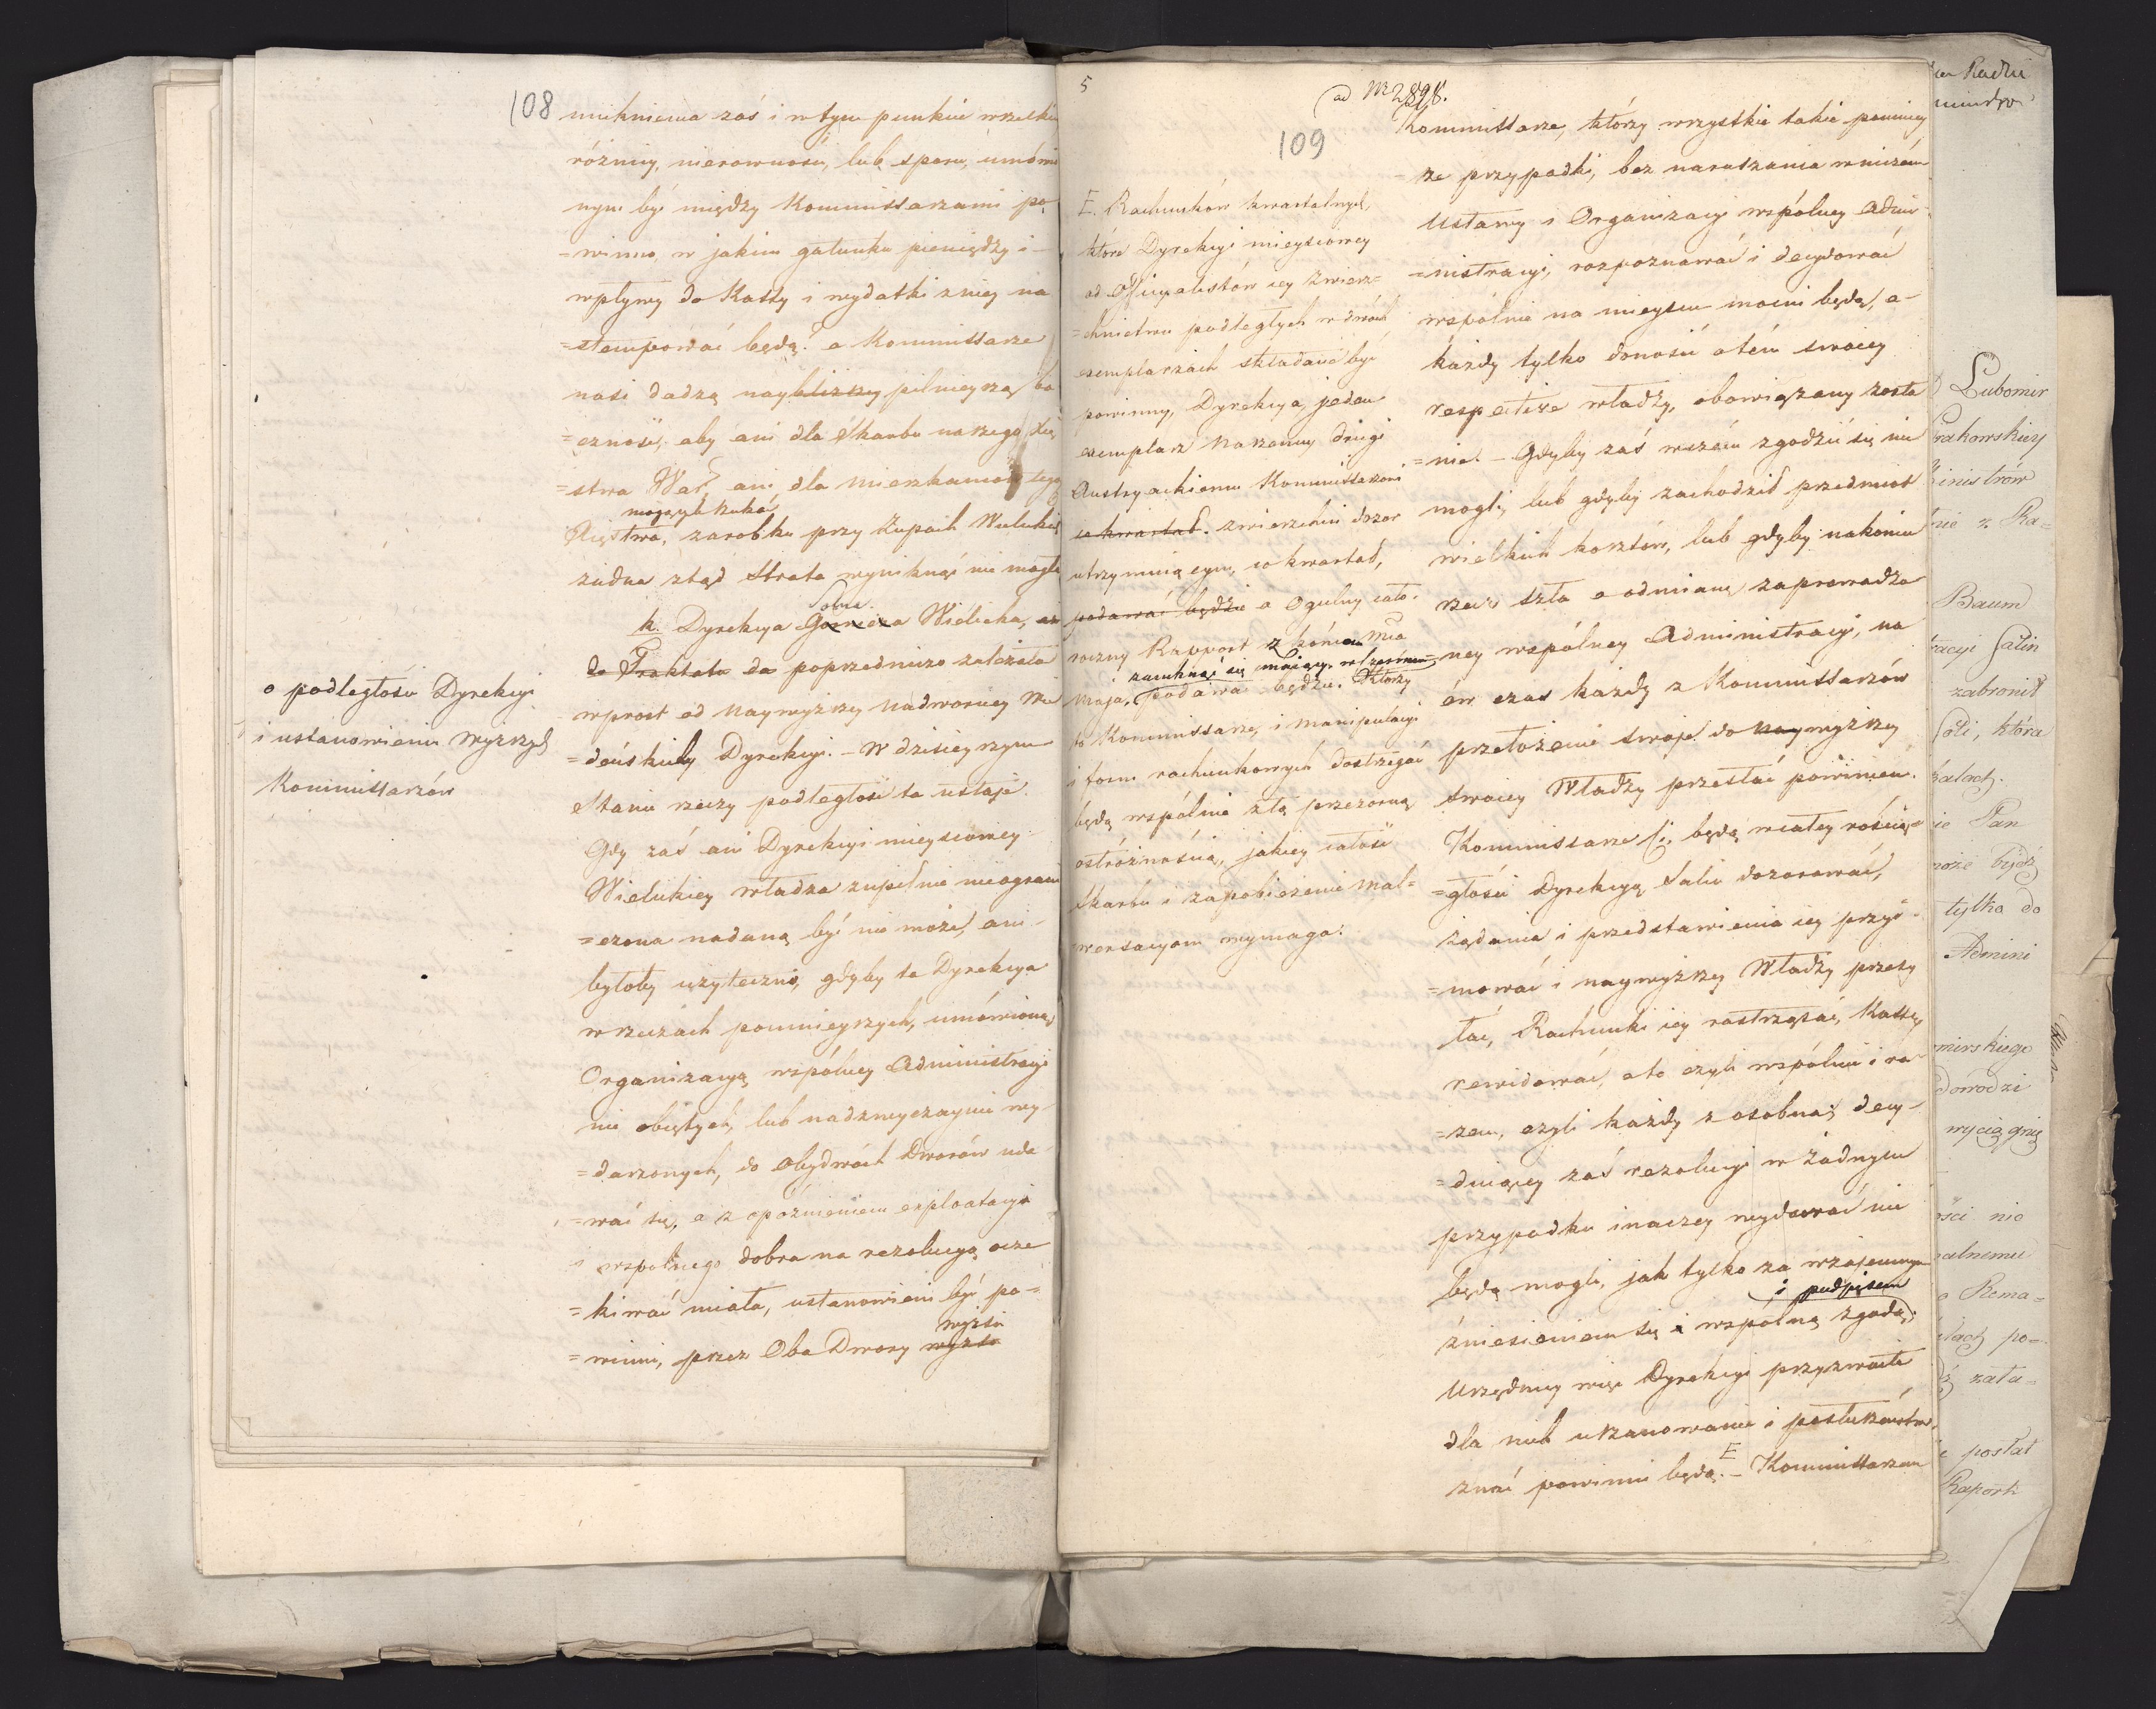 108
uniknienia zaś i w tym punkcie wszelkiey
różnicy, nierowności, lub sporu, umówio
nym być między Kommissarzami po
=winno, w jakim gatunku pieniędzy i
wpływy do Kassy i wydatki z niey na
=stempować będą? a Kommissarze
nasi dadzą naybliższey pilnieyszą ba
=czność, aby ani dla Skarbu naszego Xię
=stwa War? ani dla Mieszkancow tego
mogących szukać
Xięstwa, zarobku przy Żupach Wielickich
żadna ztąd Strata wyniknąć nie mogła
Solna
k. Dyrekcya Gornicza Wielicka, aż
do Traktatu da poprzedniczo zależała
wprost od Naywyższey Nadworney Wie
=deńskiey Dyrekcyi. – W dzisieyszym
Stanie rzeczy podległość ta ustaje.
Gdy zaś ani Dyrekcyi mieyscowey
Wielickiey władza zupełnie nieograni
=czona nadaną być nie może, ani
byłoby użyteczno, gdyby ta Dyrekcya
w rzeczach pomnieyszych, umówioną
Organizacyą wspólney Administracyi
nie obiętych, lub nadzwyczaynie wy-
=darzonych, do Obydwóch Dworów uda
=wać się, a z opóźnieniem exploatacyi
i wspolnego dobra na rezolucyą ocze
=kiwać miała, ustanowieni być po=
wyżsi
=winni, przez Oba Dwory wyżsi
o podległości Dyrekcyi
i ustanowieniu wyższych
Kommissarzów
5
ad Nr 2898.
109
E. Rachunków kwartalnych,
które Dyrekcyi mieyscowey
od Officyalistów iey zwierz=
=chnictwu podległych w dwóch
exemplarzach składane być
powinny, Dyrekcya jeden
exemplarz Naszemu drugi
Austryackiemu Kommissarzowi
co kwartał. zwierzchni dozor
utrzymuiącym, co kwartał,
podawać będzie a Ogulny cało-
roczny Rapport z końcem Mca
zamknąć się maiący. w Czerwcu
Maja, podawać będzie. Którzy
to Kommissarze, i Manipulacyi
i form rachunkowych dostrzegać
będą wspólnie z tą przezorną
ostróżnością, jakiey całość
Skarbu i zapobieżenie mal=
wersacyom wymaga.
Kommissarze, którzy wszystkie takie pomniey
=sze przypadki, bez naruszania w niczem
Ustawy i Organizacyi wspólney Admi-
=nistracyi, rozpoznawać i decydować
wspólnie na mieyscu mocni będą, a-
każdy tylko donosić o tém swoiey
respective władzy, obowiązany zosta
=nie. – Gdyby zaś w czém zgodzić się nie
mogli, lub gdyby zachodził przedmiot
wielkich kosztów, lub gdyby nakoniec
rzecz szła o odmianę zaprowadzo
=ney wspólney Administracyi, na
ów czas każdy z Kommissarzów
przełożenie swoje do naywyższey
swoiey Władzy przesłać powinien.
Kommissarze Ci, będą w całey rozcią=
=głości Dyrekcyą Salin dozorować,
żądania i przedstawienia iey przyi-
=mować i naywyższey Władzy przesy
łać, Rachunki iey rostrząsać, Kassę
rewidować, a to czyli wspólnie i ra
=zem, czyli każdy z osobna; decy-
=duiącey zaś rezolucyi w żadnym
przypadku inaczey wydawać nie
będą mogli, jak tylko za wzajemnym
i podpisem
zniesieniem się i wspólną zgodą;
Urzędnicy więc Dyrekcyi przyzwoite
dla nich uszanowanie i posłuszeństwo
znać powinni będą. E – Kommissarzom
Lubomir
Krakowskiey
Ministrów
Baum
Salin
zabronił
Soli, która
Pan
może bydź
tylko do
Admini
mirskiego
dowodzi
wyciągnię
ości nie
alnemu
Rema=
po=
zała=
posłał
Raport